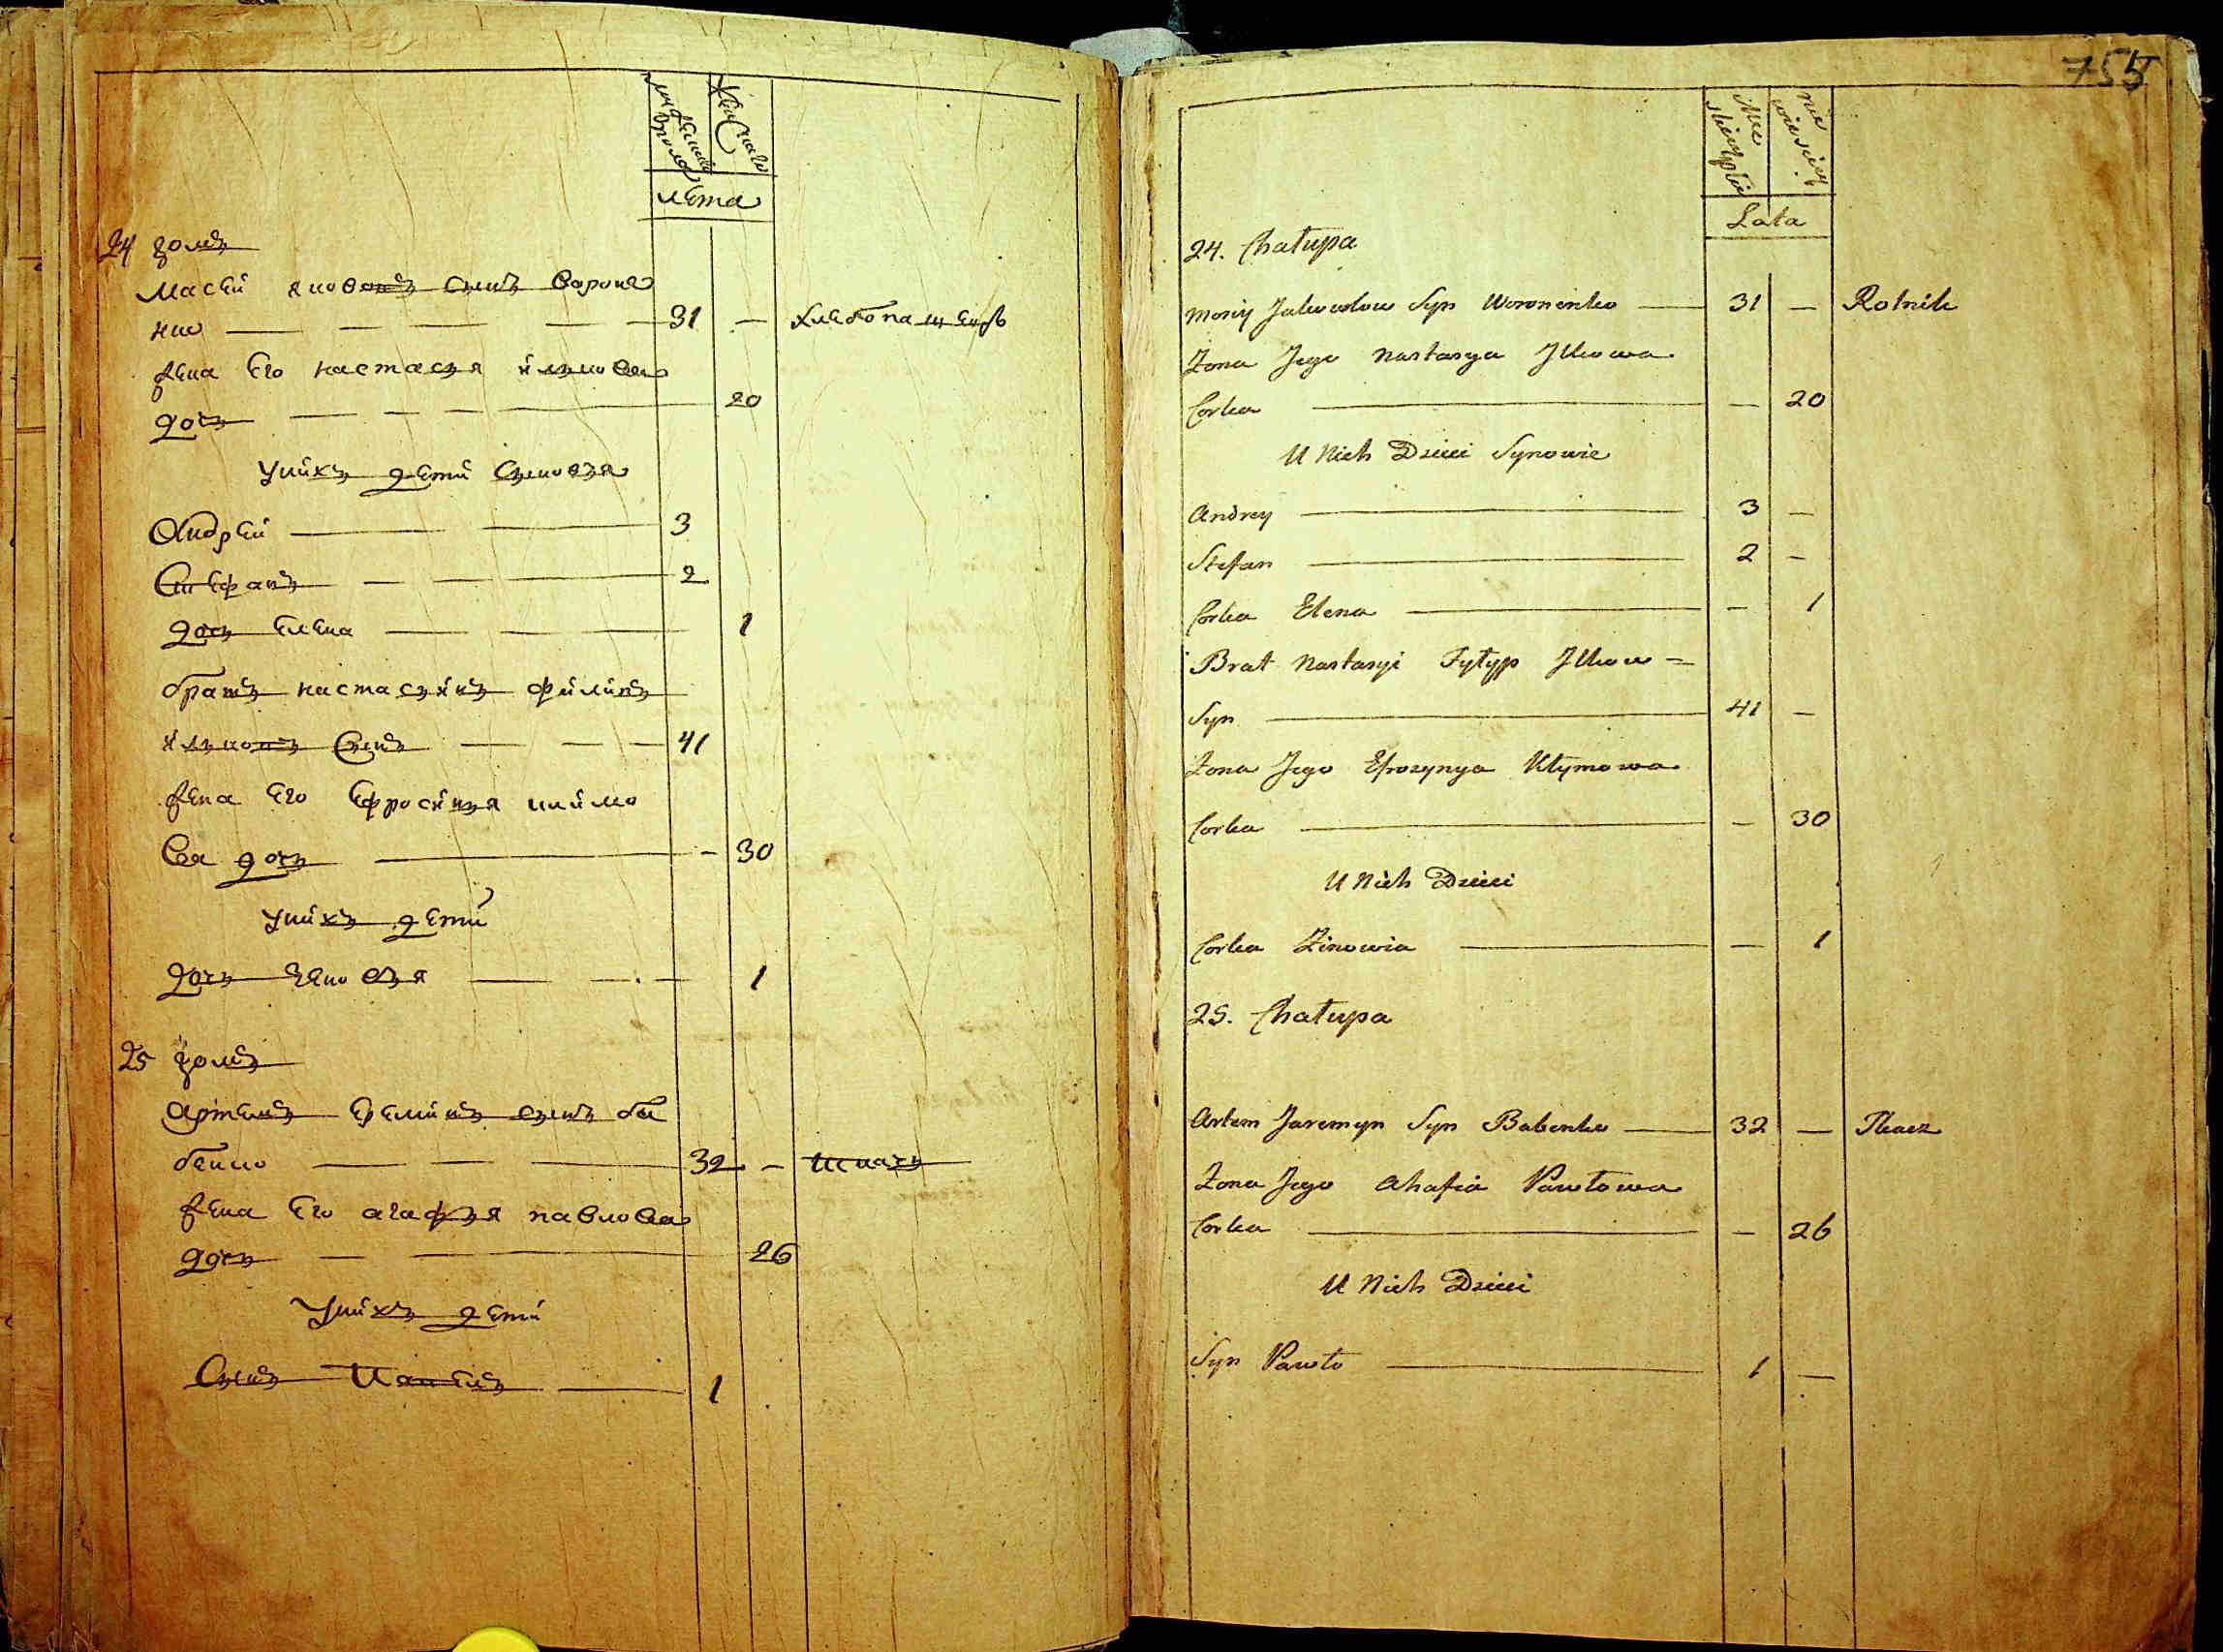 лета
24 домъ
Масѣй якововъ сынъ вороне
нко — 31 — хлебопашецъ
жена его настасья илькова
дочь — 20
у нихъ дети сыновья
Андрей — 3
Стефанъ — 2
дочь елена — 1
братъ настасьинъ филипъ
ильковъ сынъ — 41
жена его ефросинья климо
ва дочь — 30
у нихъ дети
дочь зеновья — 1
25 домъ
артемъ ереминъ сынъ ба
бенко — 32 — ткачь
жена его агафья павлова
дочь — 26
у нихъ дети
Сынъ — 1
755
Lata
24. Chałupa
Mosiy Jakowlow Syn Woronenko — 31 — Rolnik
Żona Jego Nastasya Ilkowa
Corka — 20
U Nich Dzieci Synowie
Andrey — 3 —
Stefan — 2 —
Corka Elena — 1
Brat Nastasyi Fyłyp Ilkow =
Syn — 41 —
Żona Jego Efrozynya Kłymowa
Corka — 30
U Nich Dzieci
Corka Zinowia — 1
25. Chałupa
Artem Jaremyn Syn Babenko — 32 — Tkacz
Żona Jego Ahafia Pawłowa
Corka — 26
U Nich Dzieci
Syn Pawło — 1 —